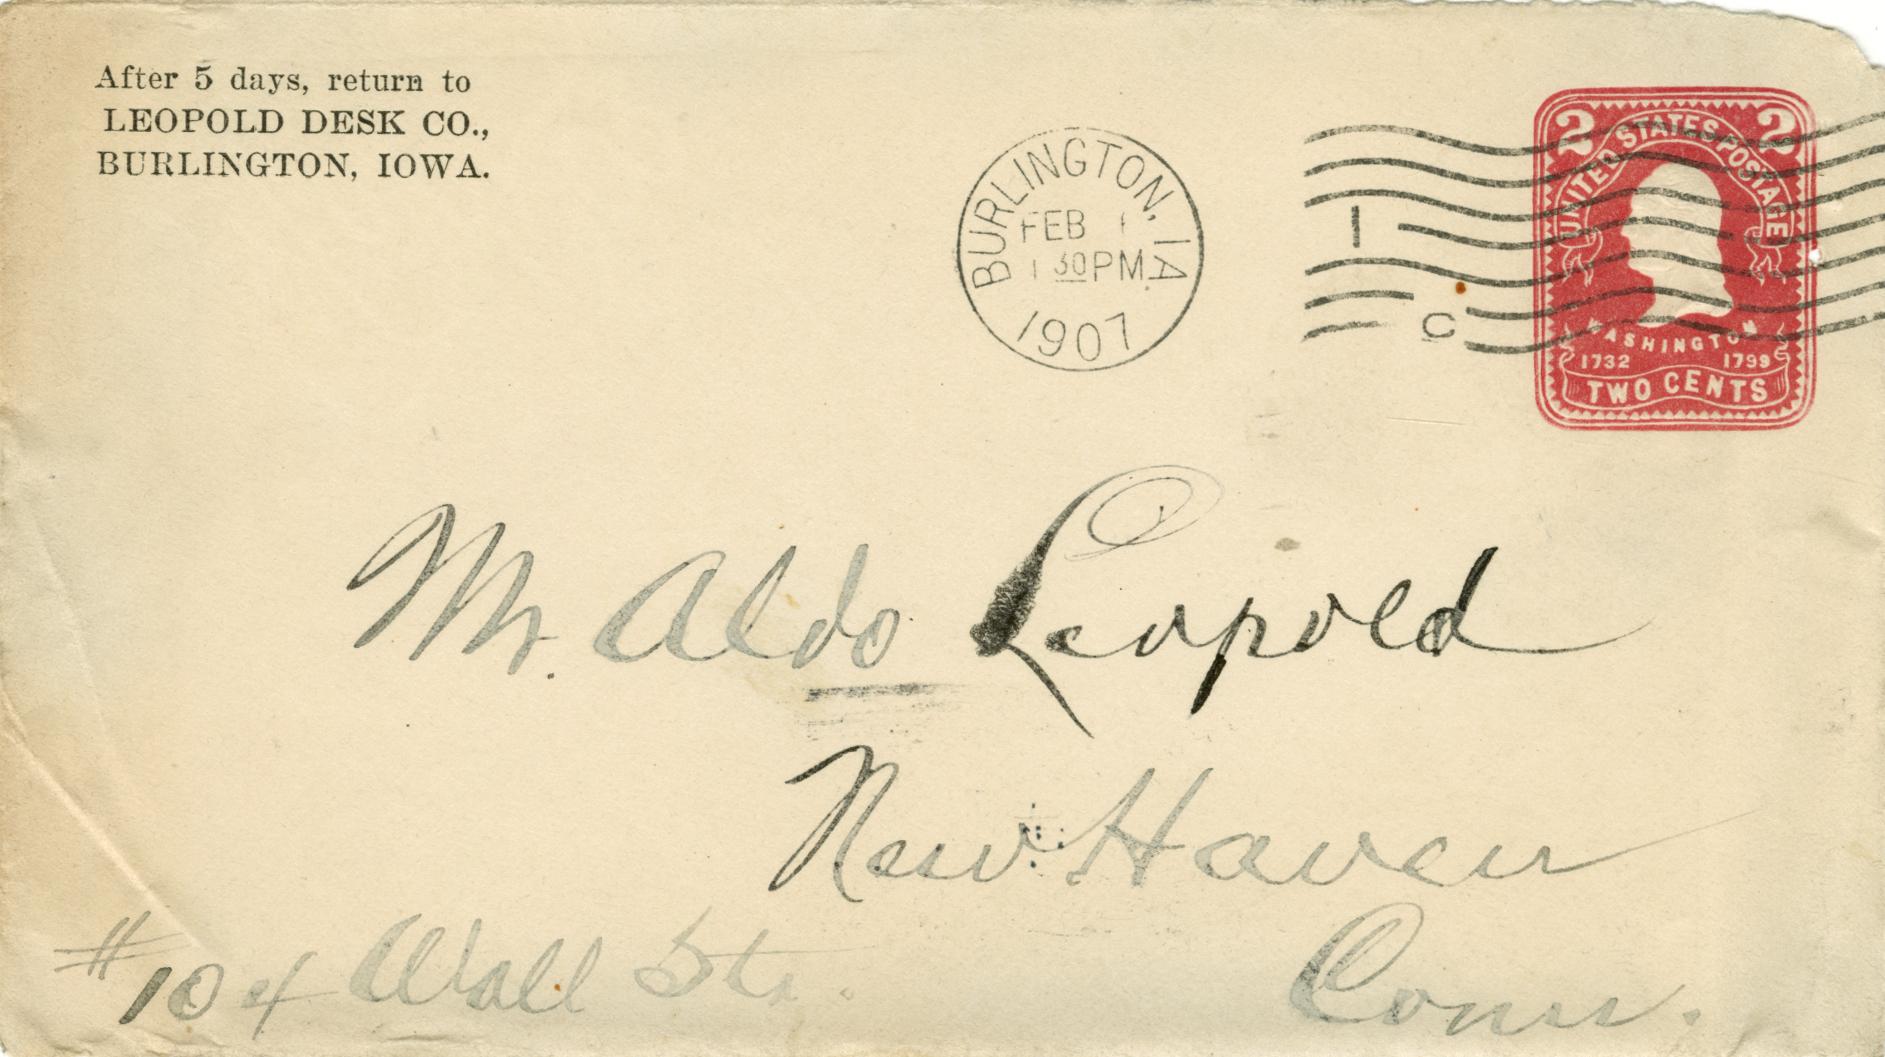 After 5 days, return to
LEOPOLD DESK CO.,
BURLINGTON, IOWA.
BURLINGTON, IA.
FEB 1
1 30 PM
1907
1
C
2 2
UNITED STATES POSTAGE
WASHINGTON
1732 1799
TWO CENTS
Mr. Aldo Leopold
New Haven
Conn.
#104 Wall Str.